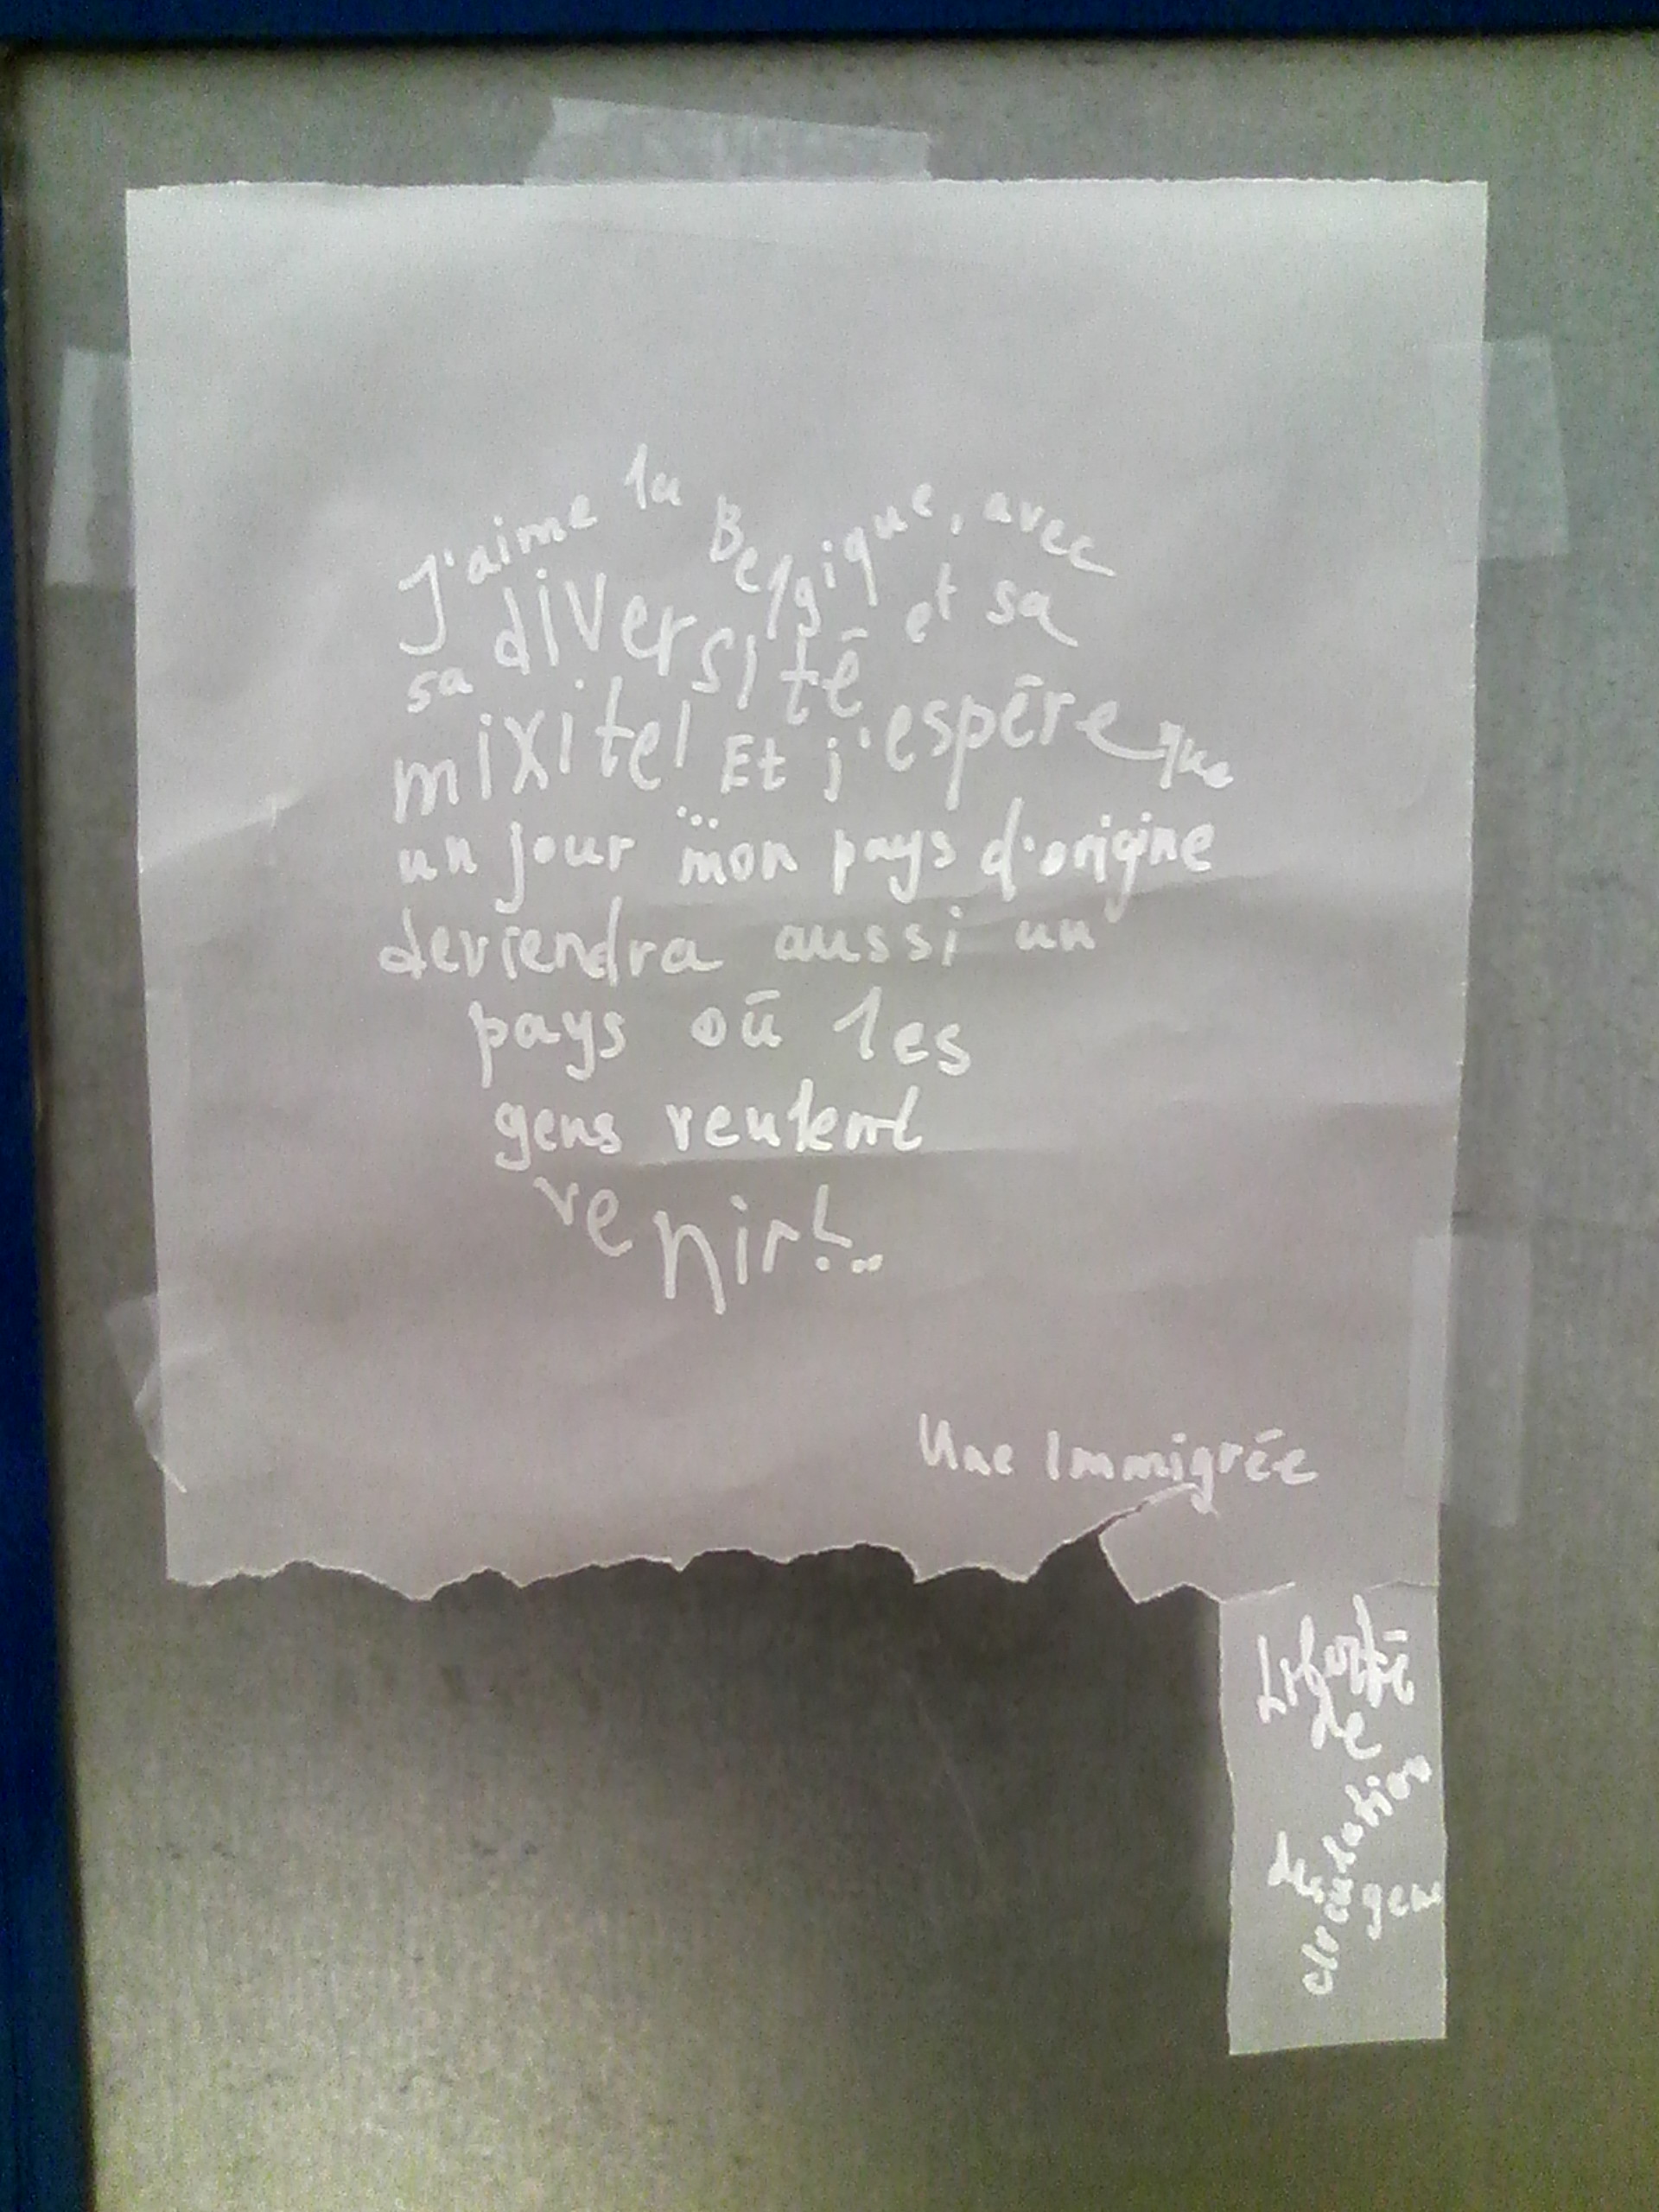 J'aime la Belgique, avec
sa diversité et sa
mixité! Et j'espère que
un jour ... mon pays d'origine
deviendra aussi un
pays où les
gens veulent
venir!..
Une Immigrée
Liberté
de
circulation
des gens